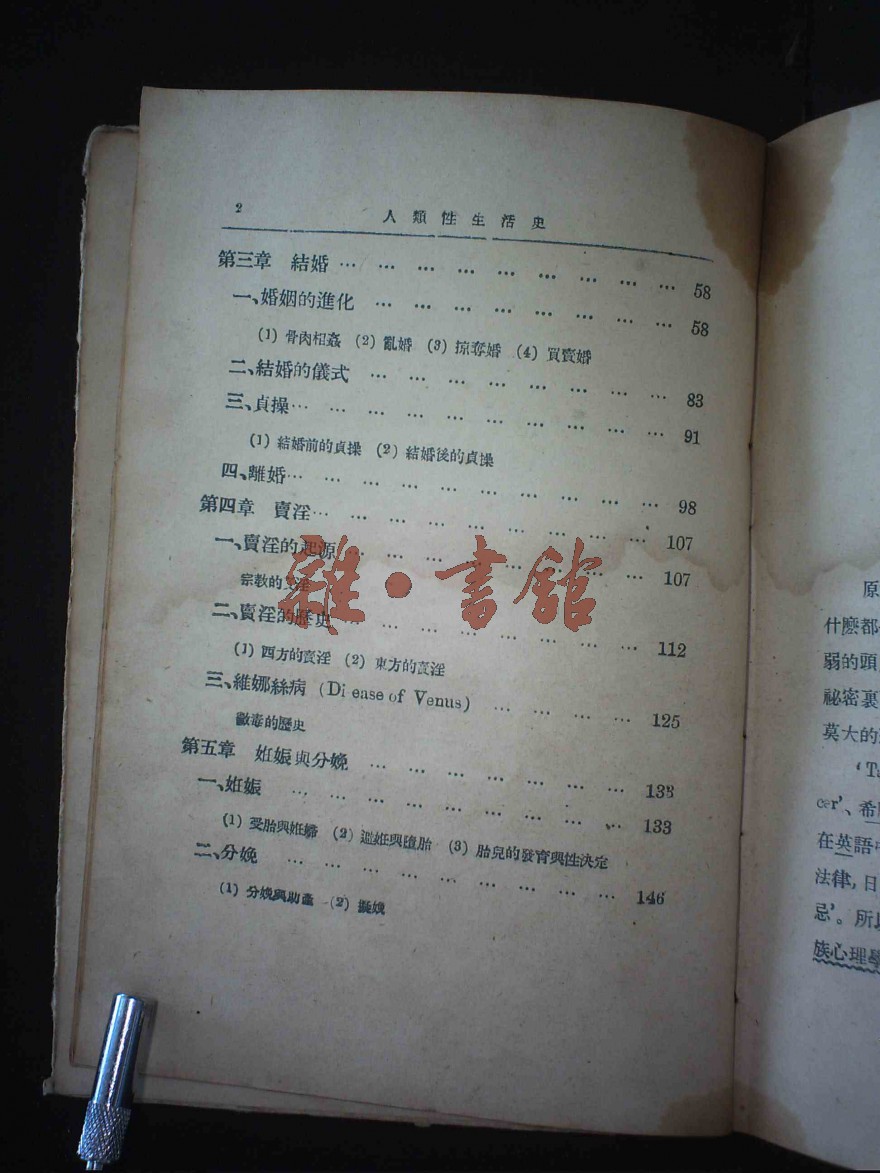 2
人類性生活史
第三章 結婚 … … … … … … … … … 58
一、婚姻的進化 … … … … … … … … 58
(1) 骨肉相姦 (2) 亂婚 (3) 掠奪婚 (4) 買賣婚
二、結婚的儀式 … … … … … … … … 83
三、貞操… … … … … … … … … … 91
(1) 結婚前的貞操 (2) 結婚後的貞操
四、離婚… … … … … … … … … … 98
第四章 賣淫… … … … … … … … … 107
一、賣淫的起源 … … … … … … … … 107
宗教的賣淫
二、賣淫的歷史 … … … … … … … … 112
(1) 西方的賣淫 (2) 東方的賣淫
三、維娜絲病 (Di ease of Venus) … … … … 125
黴毒的歷史
第五章 姙娠與分娩 … … … … … … … 133
一、姙娠 … … … … … … … … … 133
(1) 受胎與姙婦 (2) 避姙與墮胎 (3) 胎兒的發育與性決定
二、分娩 … … … … … … … … … 146
(1) 分娩與助產 (2) 擬娩
雜·書館
原
什麽都
弱的頭
祕密裏
莫大的
'T
cer'、希
在英語
法律,日
忌'。所以
族心理學